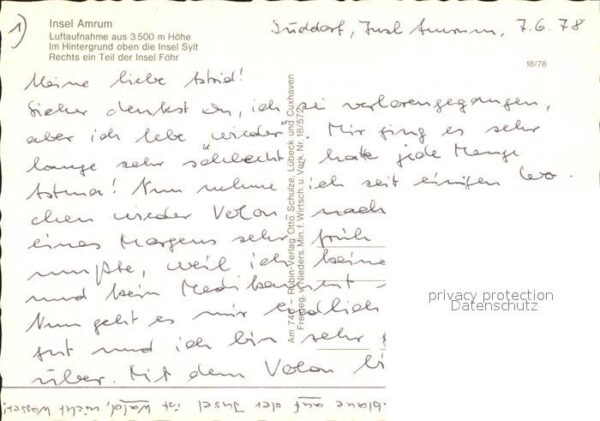 1)
Insel Amrum
Luftaufnahme aus 3500 m Höhe
Im Hintergrund oben die Insel Sylt
Rechts ein Teil der Insel Föhr
Süddorf, Insel Amrum, 7.6.78
18/78
Meine liebe Astrid!
Sicher denkst du, ich sei verlorengegangen,
aber ich lebe wieder. Mir ging es sehr
lange sehr schlecht, hatte jede Menge
Astma! Nun nehme ich seit einigen Wo-
chen wieder Volon nach
eines Morgens sehr früh
mußte, weil ich keine
und kein Medikament
Nun geht es mir endlich
gut und ich bin sehr
über. Mit dem Volon
Am 740 – Rubin-Verlag Otto Schulze, Lübeck und Cuxhaven
Freigeg. v. Nieders. Min. f. Wirtsch. u. Verk. Nr. 18/572
privacy protection
Datenschutz
blaue auf der Insel ist Wald, nicht Wasser!